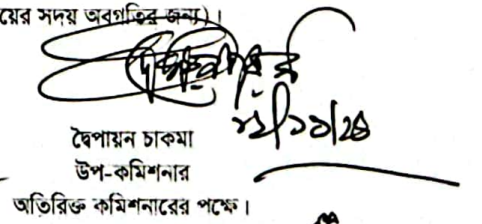 য়ের সদয় অবগতির জন্য)।
দ্বৈপায়ন চাকমা
উপ-কমিশনার
অতিরিক্ত কমিশনারের পক্ষে।